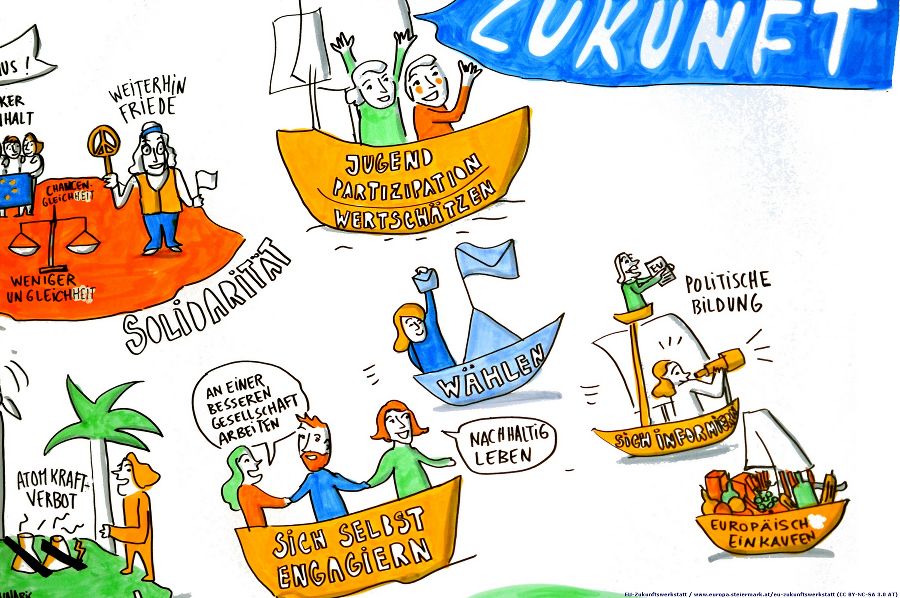 ZUKUNFT
US!
KER
HALT
WEITERHIN
FRIEDE
CHANCEN-
GLEICHHEIT
WENIGER
UNGLEICHHEIT
SOLIDARITÄT
JUGEND
PARTIZIPATION
WERTSCHÄTZEN
WÄHLEN
EU
POLITISCHE
BILDUNG
SICH INFORMIEREN
EUROPÄISCH
EINKAUFEN
AN EINER
BESSEREN
GESELLSCHAFT
ARBEITEN
NACHHALTIG
LEBEN
SICH SELBST
ENGAGIERN
ATOMKRAFT-
VERBOT
EU-Zukunftswerkstatt / www.europa.steiermark.at/eu-zukunftswerkstatt (CC BY-NC-SA 3.0 AT)